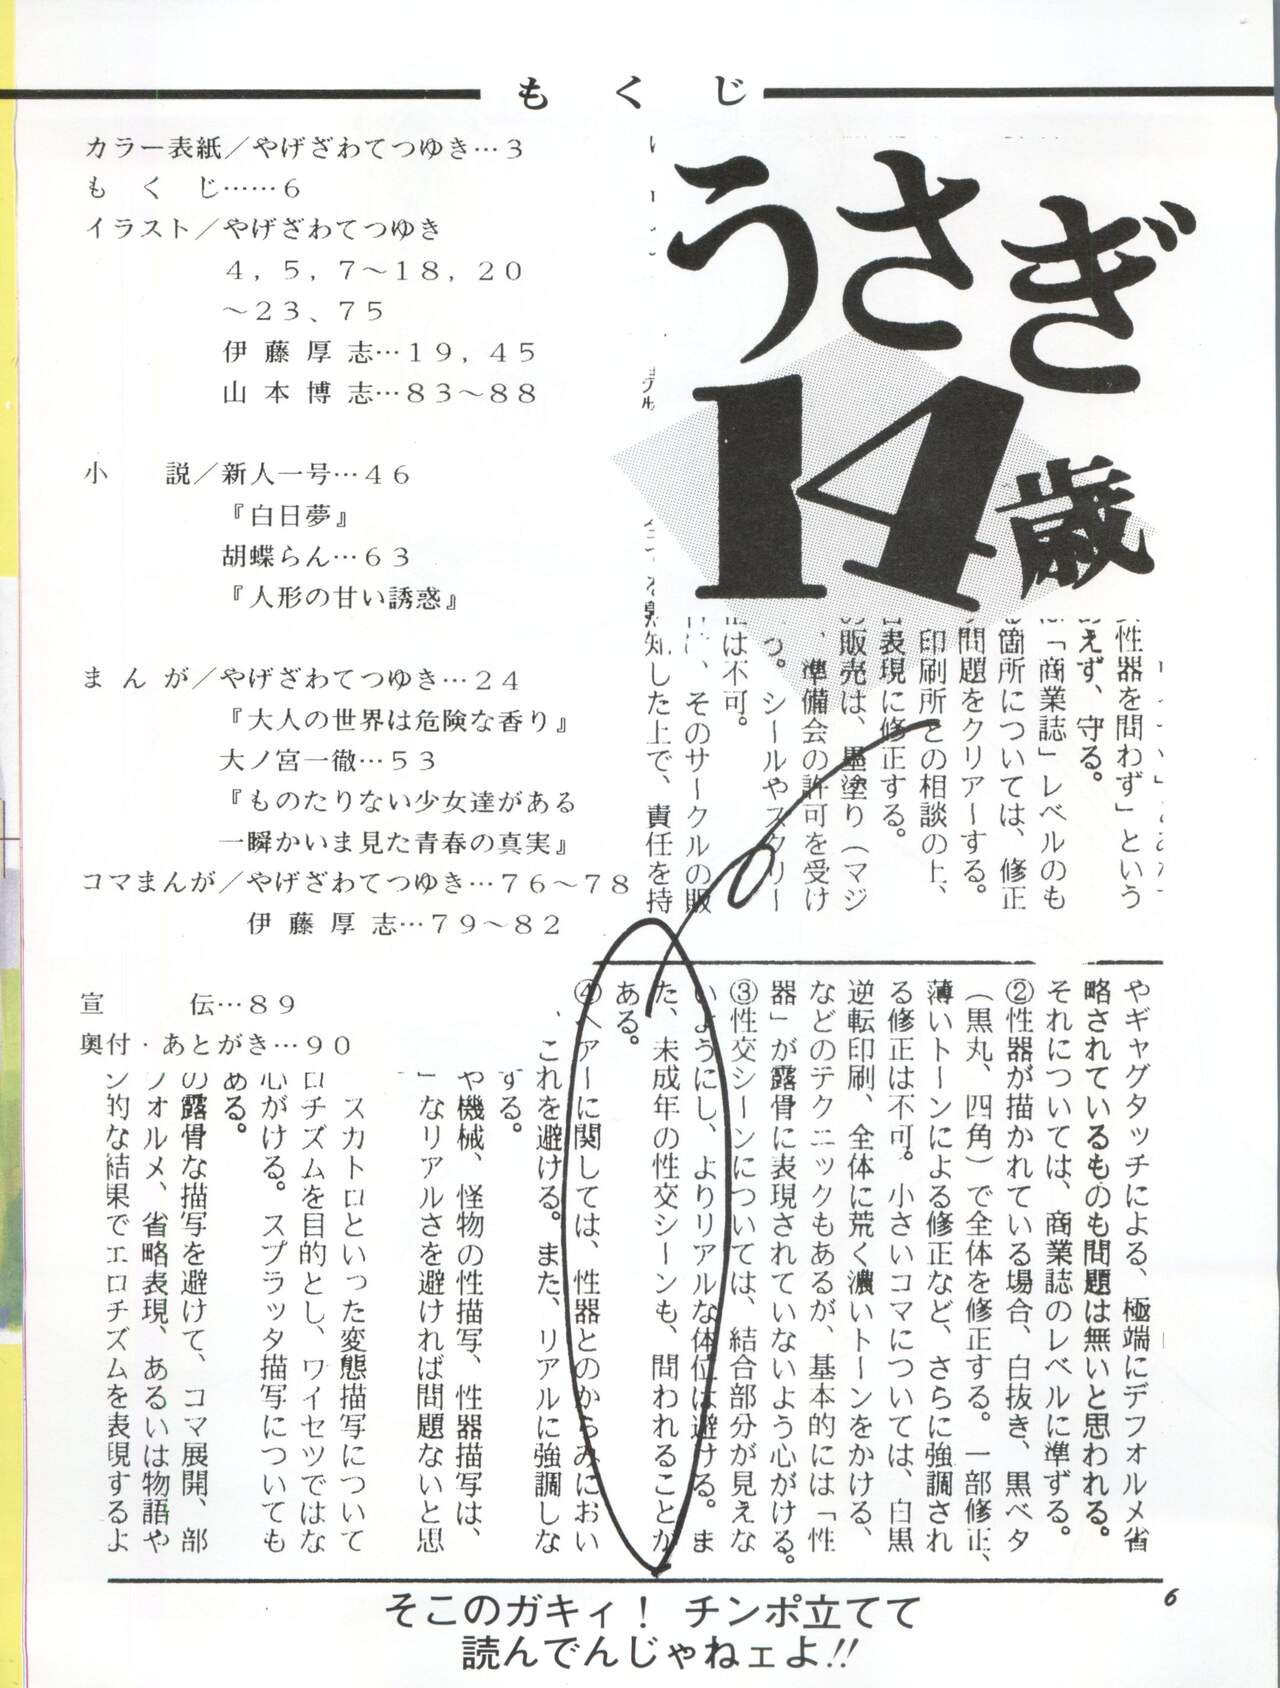 もくじ
カラー表紙／やげざわてつゆき…3
もくじ……6
イラスト／やげざわてつゆき
4, 5, 7～18, 20
～23、75
伊藤厚志…19, 45
山本博志…83～88
小説／新人一号…46
『白日夢』
胡蝶らん…63
『人形の甘い誘惑』
まんが／やげざわてつゆき…24
『大人の世界は危険な香り』
大ノ宮一徹…53
『ものたりない少女達がある
一瞬かいま見た青春の真実』
コマまんが／やげざわてつゆき…76～78
伊藤厚志…79～82
宣伝…89
奥付・あとがき…90
うさぎ
14歳
性器を問わず」という
えず、守る。
「商業誌」レベルのも
箇所については、修正
問題をクリアーする。
印刷所との相談の上、
表現に修正する。
の販売は、墨塗り（マジ
、準備会の許可を受け
つ。シールやスクリー
は不可。
、そのサークルの販
知した上で、責任を持
やギャグタッチによる、極端にデフォルメ省
略されているものも問題は無いと思われる。
それについては、商業誌のレベルに準ずる。
②性器が描かれている場合、白抜き、黒ベタ
（黒丸、四角）で全体を修正する。一部修正、
薄いトーンによる修正など、さらに強調され
る修正は不可。小さいコマについては、白黒
逆転印刷、全体に荒く濃いトーンをかける、
などのテクニックもあるが、基本的には「性
器」が露骨に表現されていないよう心がける。
③性交シーンについては、結合部分が見えな
いようにし、よりリアルな体位は避ける。ま
た、未成年の性交シーンも、問われることが
ある。
④ヘアーに関しては、性器とのからみにおい
、これを避ける。また、リアルに強調しな
する。
や機械、怪物の性描写、性器描写は、
」なリアルさを避ければ問題ないと思
スカトロといった変態描写について
ロチズムを目的とし、ワイセツではな
心がける。スプラッタ描写についても
める。
の露骨な描写を避けて、コマ展開、部
フォルメ、省略表現、あるいは物語や
ン的な結果でエロチズムを表現するよ
そこのガキィ！ チンポ立てて
読んでんじゃねェよ!!
6